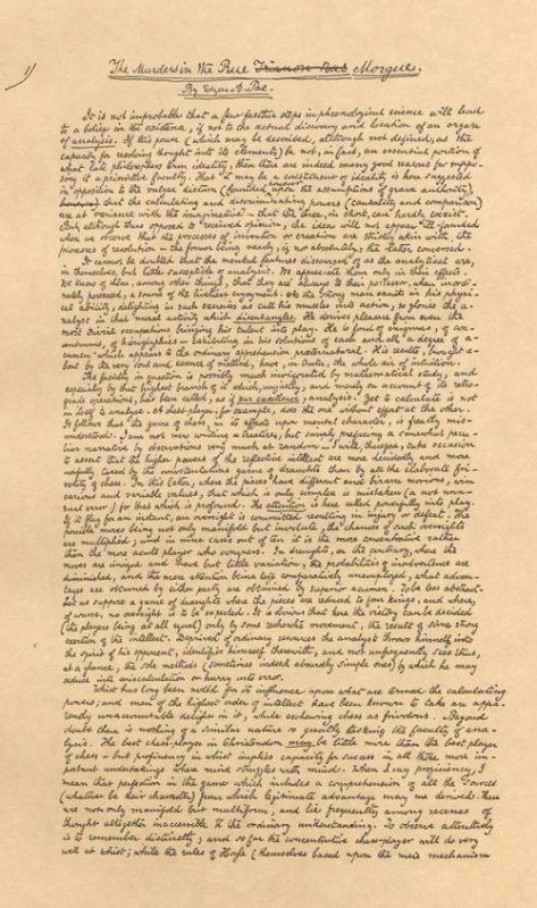 1)
The Murders in the Rue Trianon Bas Morgue.
By Edgar A. Poe.
It is not improbable that a few farther steps in phrenological science will lead
to a belief in the existence, if not to the actual discovery and location of an organ
of analysis. If this power (which may be described, although not defined, as the
capacity for resolving thought into its elements) be not, in fact, an essential portion of
what late philosophers term ideality, then there are indeed many good reasons for suppo-
sing it a primitive faculty. That it may be a constituent of ideality is here suggested
in opposition to the vulgar dictum (founded, however, upon the assumptions of grave authority),
that the calculating and discriminating powers (causality and comparison)
are at variance with the imaginative - that the three, in short, can hardly coexist.
But, although thus opposed to received opinion, the idea will not appear ill-founded
when we observe that the processes of invention or creation are strictly akin with the
processes of resolution - the former being nearly, if not absolutely, the latter conversed.
It cannot be doubted that the mental features discoursed of as the analytical are,
in themselves, but little susceptible of analysis. We appreciate them only in their effects.
We know of them, among other things, that they are always to their possessor, when inordi-
nately possessed, a source of the liveliest enjoyment. As the strong man exults in his physi-
cal ability, delighting in such exercises as call his muscles into action, so glories the a-
nalyst in that moral activity which disentangles. He derives pleasure from even the
most trivial occupations bringing his talent into play. He is fond of enigmas, of con-
undrums, of hieroglyphics - exhibiting in his solutions of each and all a degree of a-
cumen which appears to the ordinary apprehension præternatural. His results, brought a-
bout by the very soul and essence of method, have, in truth, the whole air of intuition.
The faculty in question is possibly much invigorated by mathematical study, and
especially by that highest branch of it which, unjustly, and merely on account of its retro-
grade operations, has been called, as if par excellence, analysis. Yet to calculate is not
in itself to analyze. A chess-player, for example, does the one without effort at the other.
It follows that the game of chess, in its effects upon mental character, is greatly mis-
understood. I am not now writing a treatise, but simply prefacing a somewhat pecu-
liar narrative by observations very much at random - I will, therefore, take occasion
to assert that the higher powers of the reflective intellect are more decidedly and more
usefully tasked by the unostentatious game of draughts than by all the elaborate fri-
volity of chess. In this latter, where the pieces have different and bizarre motions, with
various and variable values, that which is only complex is mistaken (a not unu-
sual error) for that which is profound. The attention is here called powerfully into play.
If it flag for an instant, an oversight is committed resulting in injury or defeat. The
possible moves being not only manifold but involute, the chances of such oversights
are multiplied; and in nine cases out of ten it is the more concentrative rather
than the more acute player who conquers. In draughts, on the contrary, where the
moves are unique and have but little variation, the probabilities of inadvertence are
diminished, and the mere attention being left comparatively unemployed, what advan-
tages are obtained by either party are obtained by superior acumen. To be less abstract-
let us suppose a game of draughts where the pieces are reduced to four kings, and where,
of course, no oversight is to be expected. It is obvious that here the victory can be decided
(the players being at all equal) only by some recherché movement, the result of some strong
exertion of the intellect. Deprived of ordinary resources the analyst throws himself into
the spirit of his opponent, identifies himself therewith, and not unfrequently sees thus,
at a glance, the sole methods (sometimes indeed absurdly simple ones) by which he may
seduce into miscalculation or hurry into error.
Whist has long been noted for its influence upon what are termed the calculating
powers; and men of the highest order of intellect have been known to take an appa-
rently unaccountable delight in it, while eschewing chess as frivolous. Beyond
doubt there is nothing of a similar nature so greatly tasking the faculty of ana-
lysis. The best chess-player in Christendom may be little more than the best player
of chess - but proficiency in whist implies capacity for success in all those more im-
portant undertakings where mind struggles with mind. When I say proficiency, I
mean that perfection in the game which includes a comprehension of all the sources
(whatever be their character) from which legitimate advantage may be derived. These
are not only manifold but multiform, and lie frequently among recesses of
thought altogether inaccessible to the ordinary understanding. To observe attentively
is to remember distinctly; and so far the concentrative chess-player will do very
well at whist; while the rules of Hoyle (themselves based upon the mere mechanism